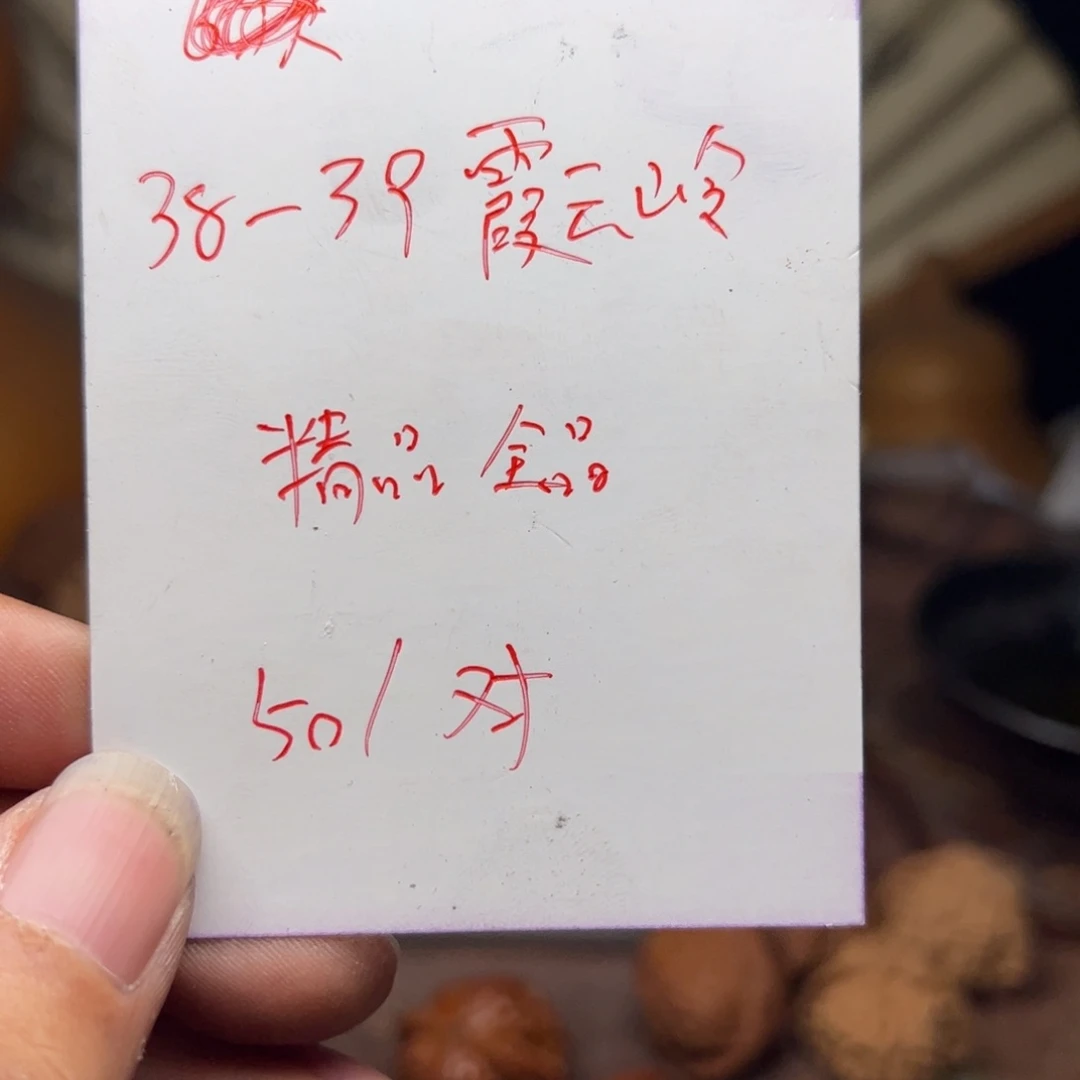 38-39 霞云岭
精品 全品
50/对